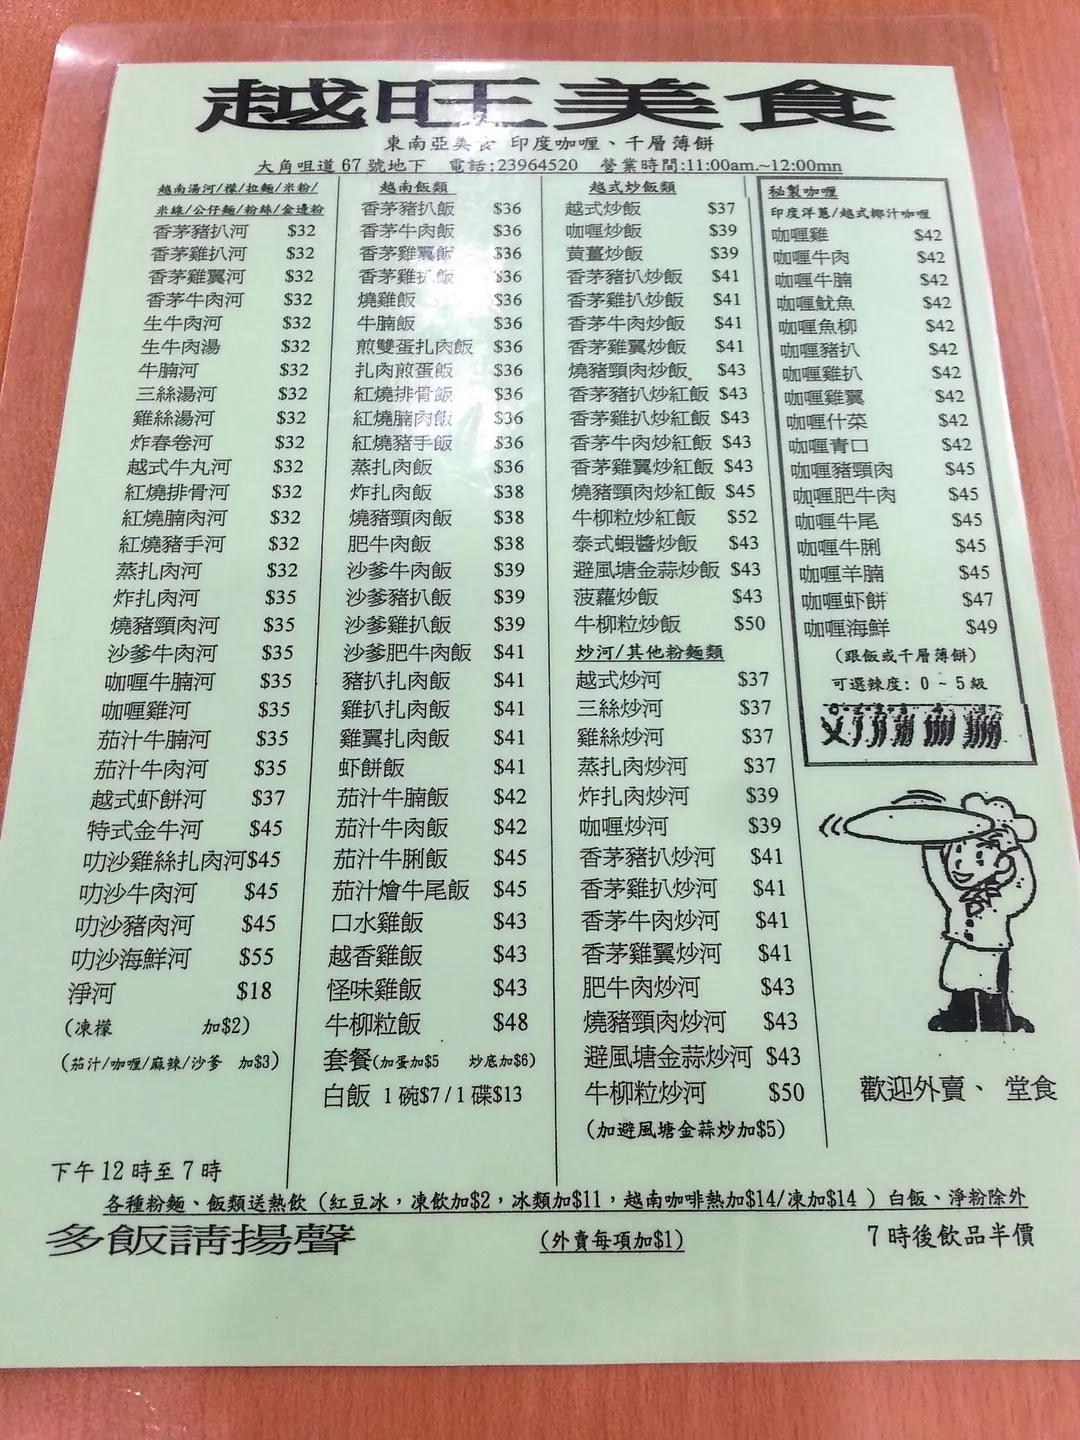 越旺美食
東南亞美食 印度咖喱、千層薄餅
大角咀道 67 號地下 電話:23964520 營業時間:11:00am.~12:00mn
越南湯河/檬/拉麵/米粉/
米線/公仔麵/粉絲/金邊粉
香茅豬扒河 $32
香茅雞扒河 $32
香茅雞翼河 $32
香茅牛肉河 $32
生牛肉河 $32
生牛肉湯 $32
牛腩河 $32
三絲湯河 $32
雞絲湯河 $32
炸春卷河 $32
越式牛丸河 $32
紅燒排骨河 $32
紅燒腩肉河 $32
紅燒豬手河 $32
蒸扎肉河 $32
炸扎肉河 $35
燒豬頸肉河 $35
沙爹牛肉河 $35
咖喱牛腩河 $35
咖喱雞河 $35
茄汁牛腩河 $35
茄汁牛肉河 $35
越式虾餅河 $37
特式金牛河 $45
叻沙雞絲扎肉河$45
叻沙牛肉河 $45
叻沙豬肉河 $45
叻沙海鮮河 $55
淨河 $18
(凍檬 加$2)
(茄汁/咖喱/麻辣/沙爹 加$3)
越南飯類
香茅豬扒飯 $36
香茅牛肉飯 $36
香茅雞翼飯 $36
香茅雞扒飯 $36
燒雞飯 $36
牛腩飯 $36
煎雙蛋扎肉飯 $36
扎肉煎蛋飯 $36
紅燒排骨飯 $36
紅燒腩肉飯 $36
紅燒豬手飯 $36
蒸扎肉飯 $36
炸扎肉飯 $38
燒豬頸肉飯 $38
肥牛肉飯 $38
沙爹牛肉飯 $39
沙爹豬扒飯 $39
沙爹雞扒飯 $39
沙爹肥牛肉飯 $41
豬扒扎肉飯 $41
雞扒扎肉飯 $41
雞翼扎肉飯 $41
虾餅飯 $41
茄汁牛腩飯 $42
茄汁牛肉飯 $42
茄汁牛脷飯 $45
茄汁燴牛尾飯 $45
口水雞飯 $43
越香雞飯 $43
怪味雞飯 $43
牛柳粒飯 $48
套餐(加蛋加$5 炒底加$6)
白飯 1 碗$7/1 碟$13
越式炒飯類
越式炒飯 $37
咖喱炒飯 $39
黄薑炒飯 $39
香茅豬扒炒飯 $41
香茅雞扒炒飯 $41
香茅牛肉炒飯 $41
香茅雞翼炒飯 $41
燒豬頸肉炒飯 $43
香茅豬扒炒紅飯 $43
香茅雞扒炒紅飯 $43
香茅牛肉炒紅飯 $43
香茅雞翼炒紅飯 $43
燒豬頸肉炒紅飯 $45
牛柳粒炒紅飯 $52
泰式蝦醬炒飯 $43
避風塘金蒜炒飯 $43
菠蘿炒飯 $43
牛柳粒炒飯 $50
炒河/其他粉麵類
越式炒河 $37
三絲炒河 $37
雞絲炒河 $37
蒸扎肉炒河 $37
炸扎肉炒河 $39
咖喱炒河 $39
香茅豬扒炒河 $41
香茅雞扒炒河 $41
香茅牛肉炒河 $41
香茅雞翼炒河 $41
肥牛肉炒河 $43
燒豬頸肉炒河 $43
避風塘金蒜炒河 $43
牛柳粒炒河 $50
(加避風塘金蒜炒加$5)
秘製咖喱
印度洋蔥/越式椰汁咖喱
咖喱雞 $42
咖喱牛肉 $42
咖喱牛腩 $42
咖喱魷魚 $42
咖喱魚柳 $42
咖喱豬扒 $42
咖喱雞扒 $42
咖喱雞翼 $42
咖喱什菜 $42
咖喱青口 $42
咖喱豬頸肉 $45
咖喱肥牛肉 $45
咖喱牛尾 $45
咖喱牛脷 $45
咖喱羊腩 $45
咖喱虾餅 $47
咖喱海鮮 $49
(跟飯或千層薄餅)
可選辣度: 0 ~ 5 級
歡迎外賣、 堂食
下午 12 時至 7 時
各種粉麵、飯類送熱飲 (紅豆冰,凍飲加$2,冰類加$11,越南咖啡熱加$14/凍加$14 ) 白飯、淨粉除外
多飯請揚聲 (外賣每項加$1) 7 時後飲品半價